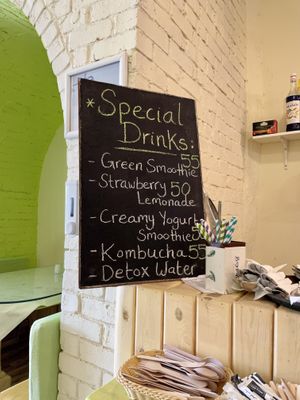 * Special
Drinks:
- Green Smoothie 55
- Strawberry 50
Lemonade
- Creamy Yogurt
Smoothie
- Kombucha 55
- Detox Water